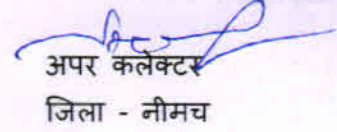 अपर कलेक्टर
जिला - नीमच